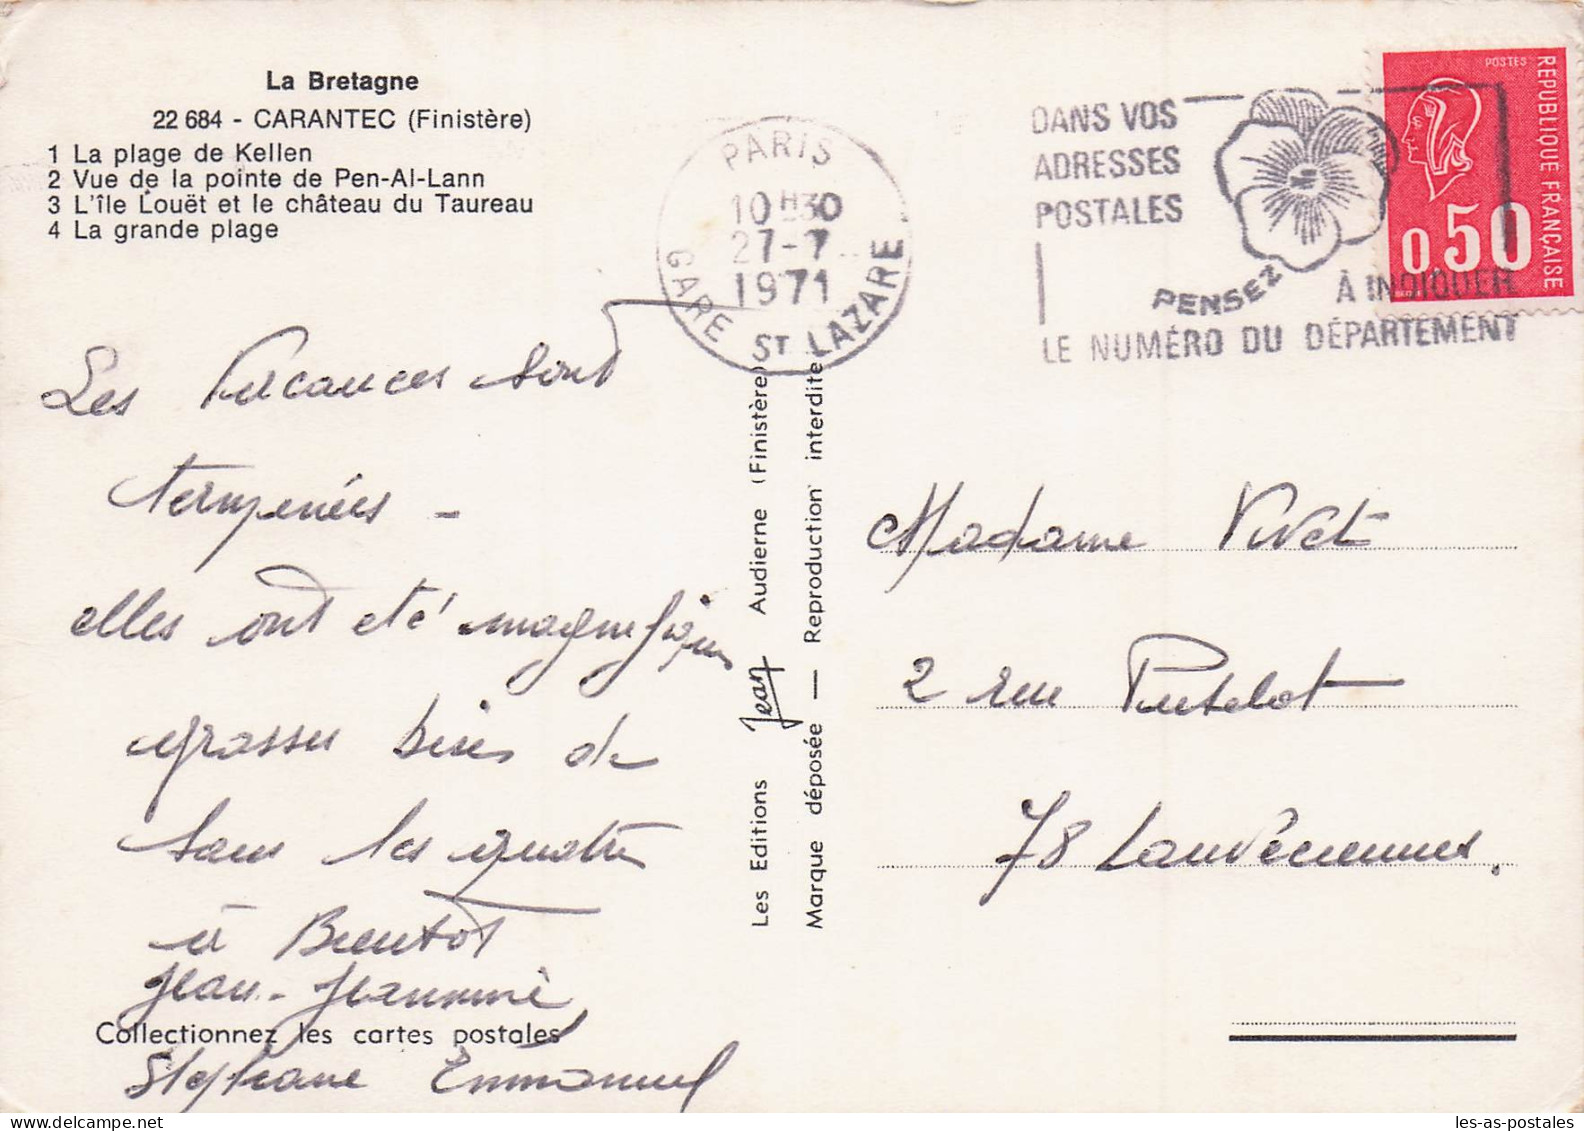 La Bretagne
22 684 - CARANTEC (Finistère)
1 La plage de Kellen
2 Vue de la pointe de Pen-Al-Lann
3 L'île Louët et le château du Taureau
4 La grande plage
PARIS
10 H 30
27-7
1971
GARE ST LAZARE
DANS VOS
ADRESSES
POSTALES
PENSEZ
À INDIQUER
LE NUMÉRO DU DÉPARTEMENT
POSTES
REPUBLIQUE FRANÇAISE
0,50
Les Vacances sont
terminées -
elles ont été magnifiques
grosses bises de
tous les quatre
à Bientôt
Jean - Jeannine
Stephane Emmanuel
Collectionnez les cartes postales
Les Editions Jean Audierne (Finistère)
Marque déposée — Reproduction interdite
Madame Vivet
2 rue
78 Louveciennes.
les-as-postales